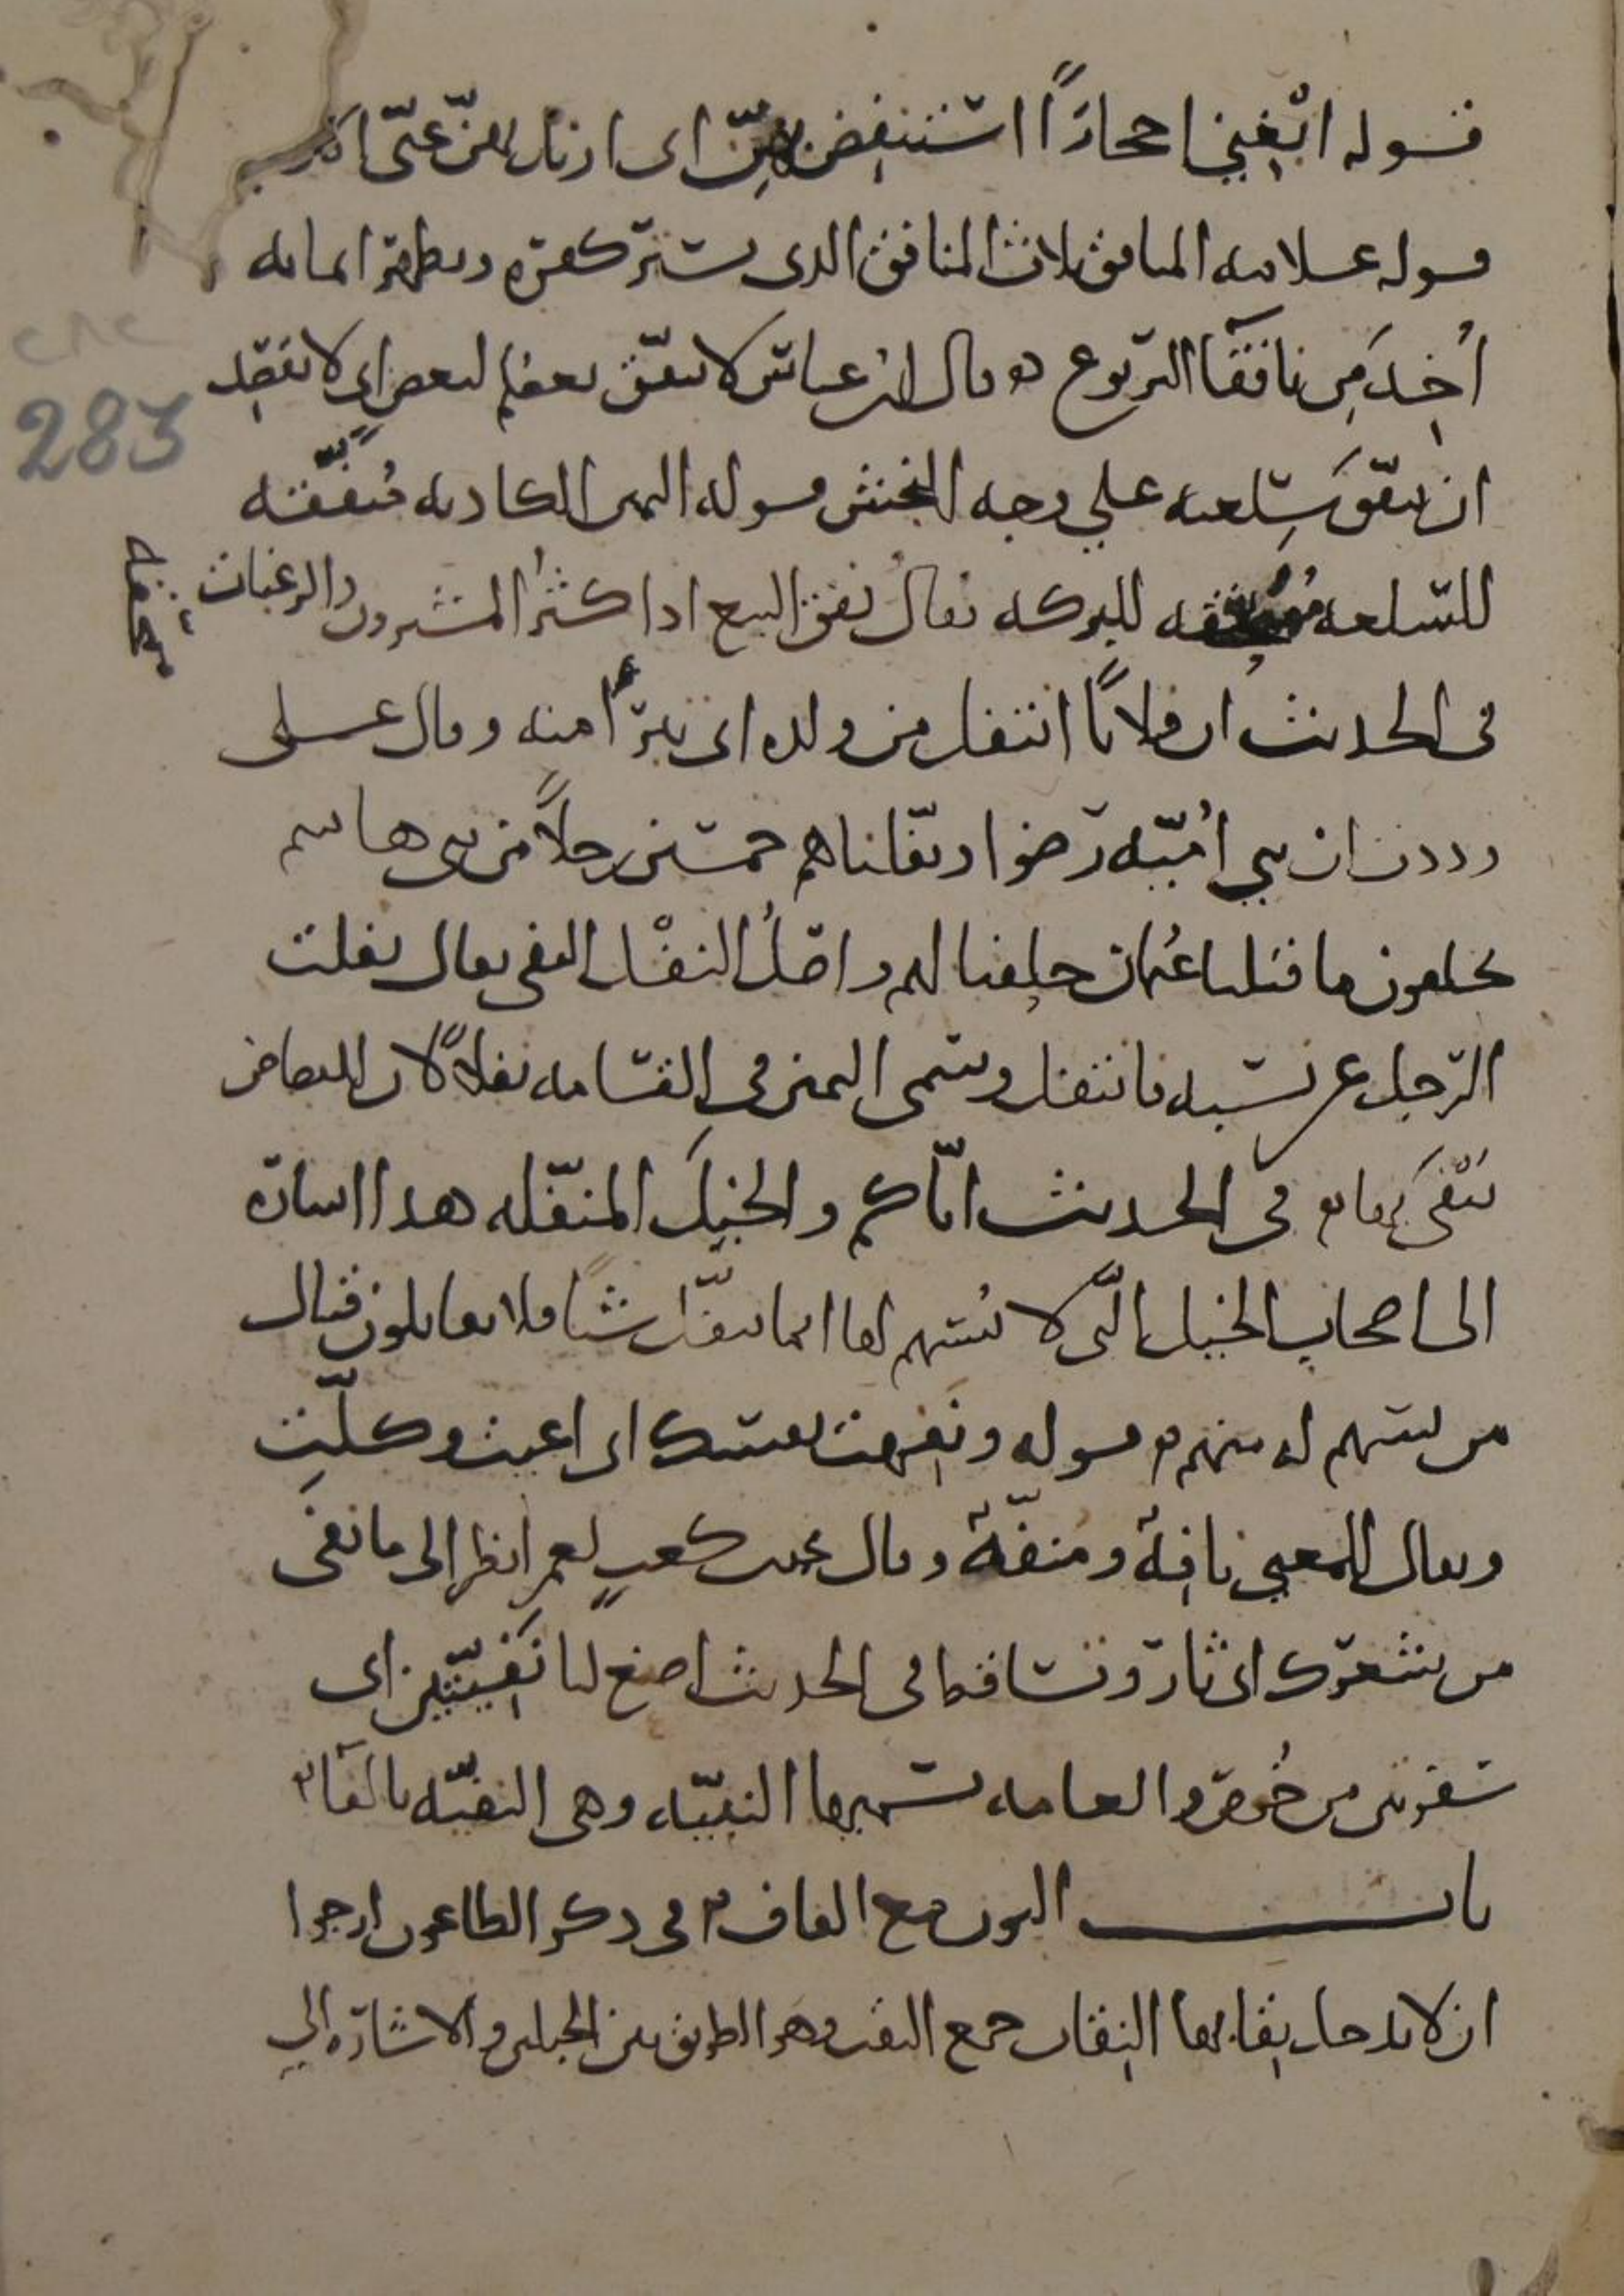 قوله ابْغِني احجارًا استنفِض بهنّ اى ازيل بهنّ عنّى الاذى
قوله علامه المنافق ثلاث المنافق الذى يستر كفره ويظهر ايمانه
أُخِذَ مِن نافقآ اليربوع ۞ وقال ابن عباس لا ينفّق بعضكم لبعض اى لا يقصِد
ان ينفّق سِلعته على وجه النجش قوله اليمين الكاذبه مُنفّقة
للسّلعه مُمْحِقه للبركه يقالُ نفق البيع اذا كثُر المشترون والرغبات
في الحديث ان فلانًا انتفل من ولده اى تبرّأ منه وقال على
وددت ان بني أُميّه رَضوا ونفّلناهم خمسين رجلاً من بني هاشم
يحلفون ما قتلنا عُثمان حلِفنا لهم واصلُ النفْل النفى يقال نفلت
الرّجل عن نسبه فانتفل وسمى اليمين في القسامه نفلاً لان القصاص
يُنْفى بها ۞ في الحديث ايّاكم والخيلَ المنفّله هذا اشارة
الى اصحاب الخيل الّتى لا يُسهم لها انما ينفّل شيًا فلا يقاتلون قتال
من يسهم له منهم ۞ قوله ونفِهت نفسك اى اعيت وكلّت
ويقال للمعيي نافِهٌ ومُنفّهٌ وقال محمد بن كعبٍ لعمر انظر الى ما نفى
من شعرك اى ثار وتساقط في الحديث اصنع لنا نَفِيّتين اى
سفرتين من خُوص والعامه تسميها النبيّه وهى النفيّه بالفآ ۞
باب النون مع القاف ۞ في ذكر الطاعون ارجوا
ان لا يدخل نِقابها النِقاب جمع النقب وهو الطريق بين الجبلين والاشارَه الى
283